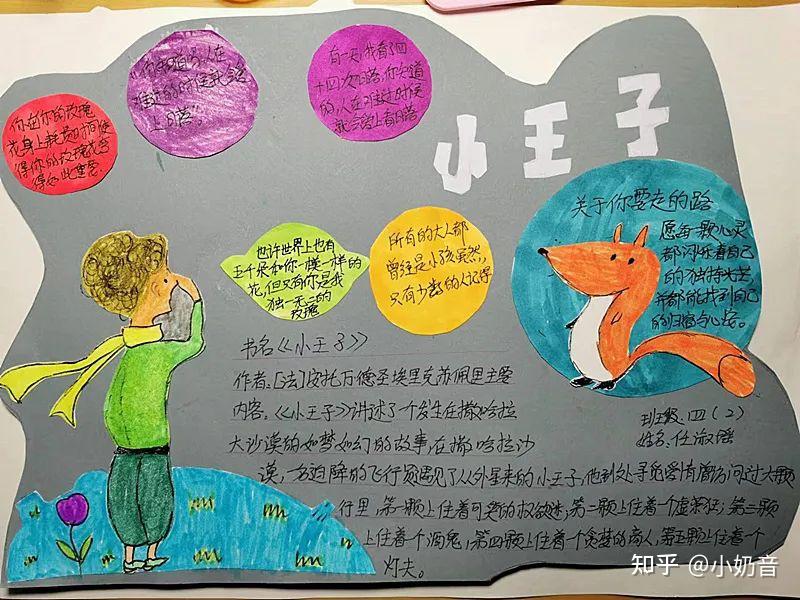 小王子
你在你的玫瑰
花身上耗费时间使
得你的玫瑰花变
得如此重要.
"你知道当人在
难过的时候就会
上日落".
有一天,我看了四
十四次日落,你知道
的,人在难过时候
就会爱上看日落
也许世界上也有
五千朵和你一模一样的
花,但只有你是我
独一无二的
玫瑰
所有的大人都
曾经是小孩虽然,
只有少数的人记得
关于你要走的路
愿每一颗心灵
都闪烁着自己
的独特光芒
并都能找到自己
的归宿与心安。
书名《小王子》
作者:[法]安托万德圣埃里克苏佩里主要
内容.《小王子》讲述了一个发生在撒哈拉
大沙漠的如梦如幻的故事,在撒哈拉沙
漠,一名迫降的飞行员遇见了从外星来的小王子,他到处寻觅爱情
行里,第一颗上住着可笑的权欲迷,第二颗上住着个虚荣狂;第三颗
上住着个酒鬼,第四颗上住着个贪婪的商人,第五颗上住着一个
灯夫。
班级:四(2)
姓名:任淑瑶
知乎 @小奶音